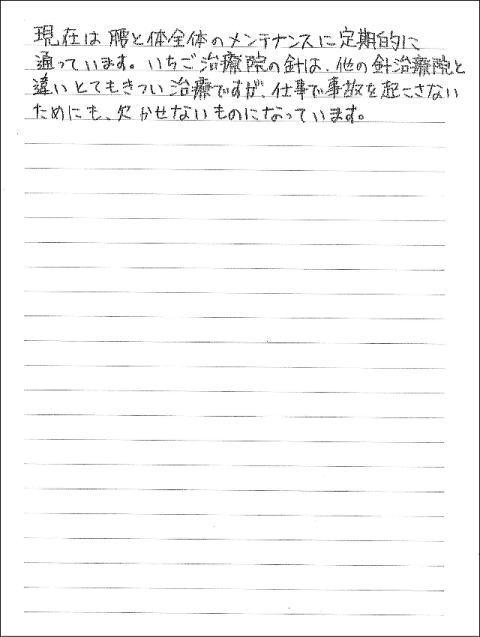 現在は腰と体全体のメンテナンスに定期的に
通っています。いちご治療院の針は、他の針治療院と
違いとてもきつい治療ですが、仕事で事故を起こさない
ためにも、欠かせないものになっています。